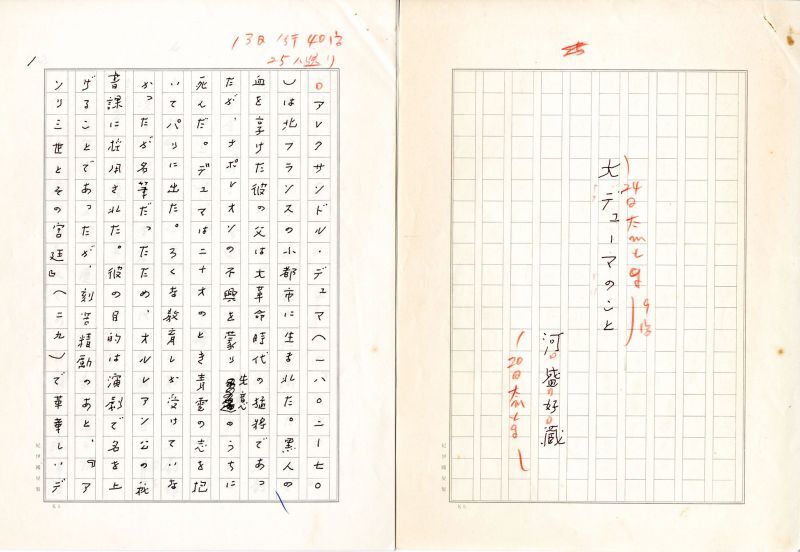 大デューマのこと
河盛好蔵
紀伊國屋製
1
13日 1行 40字
25
アレクサンドル・デュマ(一八〇二―七〇
)は北フランスの小都市に生まれた。黒人の
血を享けた彼の父は大革命時代の猛将であっ
たが、ナポレオンの不興を蒙り失意のうちに
死んだ。デュマは二十才のとき青雲の志を抱
いてパリに出た。ろくな教育しか受けていな
かったが名筆だったため、オルレアン公の秘
書課に採用された。彼の目的は演劇で名を上
げることであったが、刻苦精励のあと、『ア
ンリ三世とその宮廷』(二九)で華華しいデ
紀伊國屋製